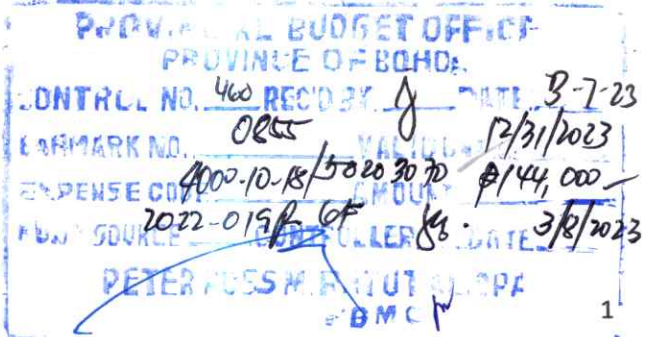 PROVINCIAL BUDGET OFFICE
PROVINCE OF BOHOL
CONTROL NO. 460 REC'D BY DATE 3-7-23
EARMARK NO. 0855 VALID 12/31/2023
EXPENSE CODE 4000-10-18/50203070 AMOUNT ₱144,000
FUND SOURCE 2022-019 GF CONTROLLER DATE 3/8/2023
PETER ROSS M. CPA
PDMC
1